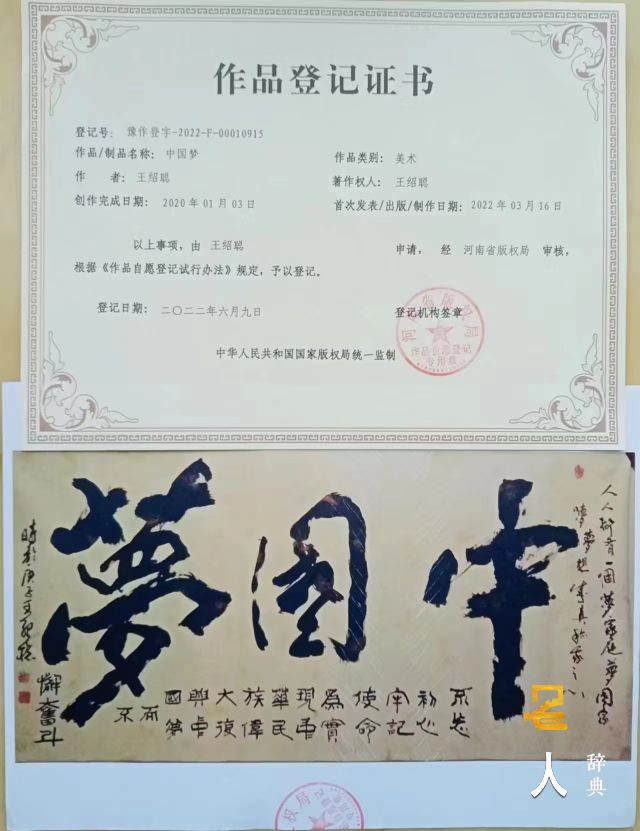 作品登记证书
登记号: 豫作登字-2022-F-00010915
作品/制品名称: 中国梦
作品类别: 美术
作 者: 王绍聪
著作权人: 王绍聪
创作完成日期: 2020年01月03日
首次发表/出版/制作日期: 2022年03月16日
以上事项, 由 王绍聪 申请, 经 河南省版权局 审核,
根据《作品自愿登记试行办法》规定, 予以登记。
登记日期: 二〇二二年六月九日
登记机构签章
河南省版权局
作品自愿登记
专用章
中华人民共和国国家版权局统一监制
中國夢
人人都有一個夢家庭夢國家
夢夢想成真
不忘
初心
牢記
使命
為實
現中
華民
族偉
大復
興中
國夢
而
不
懈奮斗
時於庚子王
人
辞典
权局